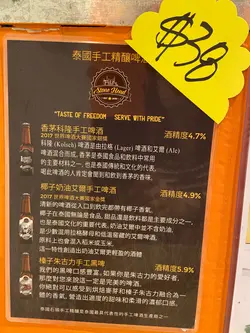 泰國手工精釀啤酒
$38
Stone Head
"TASTE OF FREEDOM SERVE WITH PRIDE"
香茅科隆手工啤酒 酒精度4.7%
2017 世界啤酒大賽國家冠
科隆 (Kolsch) 啤酒是由拉格 (Lager) 啤酒和艾爾 (Ale)
啤酒混合而成，香茅是泰國食品和飲料中常用
的主要材料之一，也是泰國傳統和文化的代表，
喝此啤酒的人肯定會聞到和飲到香茅的香味。
椰子奶油艾爾手工啤酒 酒精度4.9%
2017 世界啤酒大賽國家冠
清新的啤酒從入口到吞完都帶有椰子香氣，
椰子在泰國無論是食品、甜品還是飲料都是主要成分之一，
也是泰國傳統文化的代表，奶油艾爾中並不含奶油，
原料上也會混入粘米或玉米，
這一特性創造出奶油艾爾更細
橡子朱古力手工黑啤 酒精度5.9%
我們的黑啤口感豐富，如果你是朱古力的愛好者，
那麼對您來說這一定是一完美的啤酒，
你絕對可以感受到烘焙麥芽和朱古力融合為一
體的香氣，營造出適度的甜味和柔滑的濃郁口感。